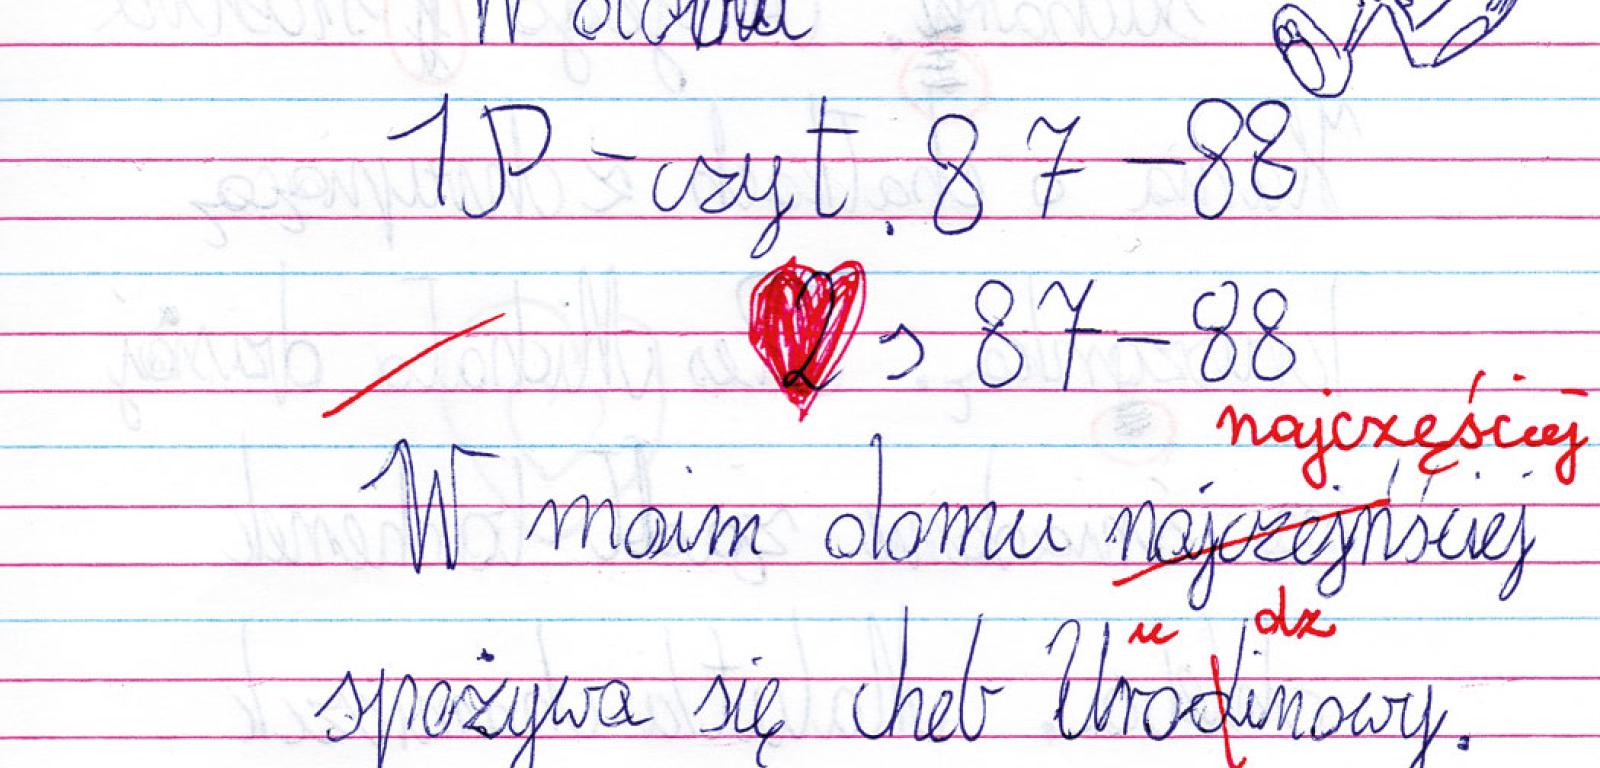 W domu
1P - czyt. 87-88
2 s 87-88
najczęściej
W moim domu najczejńściej
u dz
spożywa się cheb Urodinowy.